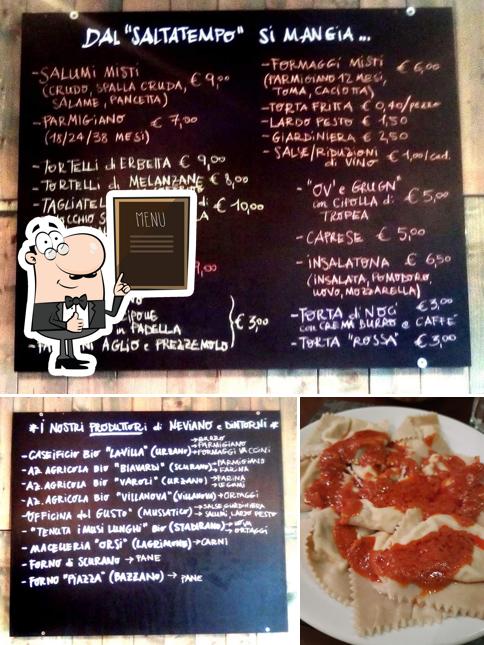 DAL "SALTATEMPO" SI MANGIA...
- SALUMI MISTI € 9,00
(CRUDO, SPALLA CRUDA,
SALAME, PANCETTA)
- PARMIGIANO € 7,00
(18/24/38 MESI)
- TORTELLI di ERBETTA € 9,00
- TORTELLI di MELANZANE € 8,00
- TAGLIATEL
di € 10,00
9,00
in PADELLA
€ 3,00
AGLIO e PREZZEMOLO
MENU
- FORMAGGI MISTI € 6,00
(PARMIGIANO 12 MESI,
TOMA, CACIOTTA)
- TORTA FRITTA € 0,40/pezzo
- LARDO PESTO € 1,50
- GIARDINIERA € 2,50
- SALSE/RIDUZIONI € 1,00/cad.
di VINO
- "OV' e GRUGN" € 5,00
con CIPOLLA di
TROPEA
- CAPRESE € 5,00
- INSALATONA € 6,50
(INSALATA, POMODORO,
UOVO, MOZZARELLA)
- TORTA di NOCI € 3,00
con CREMA BURRO e CAFFÈ
- TORTA "ROSSA" € 3,00
* I NOSTRI PRODUTTORI di NEVIANO e DINTORNI *
→ BURRO
→ PARMIGIANO
- CASEIFICIO BIO "LAVILLA" (URZANO) → FORMAGGI VACCINI
- AZ. AGRICOLA BIO "BIAVARDI" (SCURANO) → PARMIGIANO
→ FARINA
- AZ. AGRICOLA BIO "VAROLI" (URZANO) → FARINA
→ LEGUMI
- AZ. AGRICOLA BIO "VILLANOVA" (VILLANOVA) → ORTAGGI
- "OFFICINA del GUSTO" (MUSSATICO) → SALSE, GIARDINIERA
→ SALUMI, LARDO PESTO
- "TENUTA i MUSI LUNGHI" BIO (STADIRANO) → UOVA
→ ORTAGGI
- MACELLERIA "ORSI" (LAGRIMONE) → CARNI
- FORNO di SCURANO → PANE
- FORNO "PIAZZA" (BAZZANO) → PANE